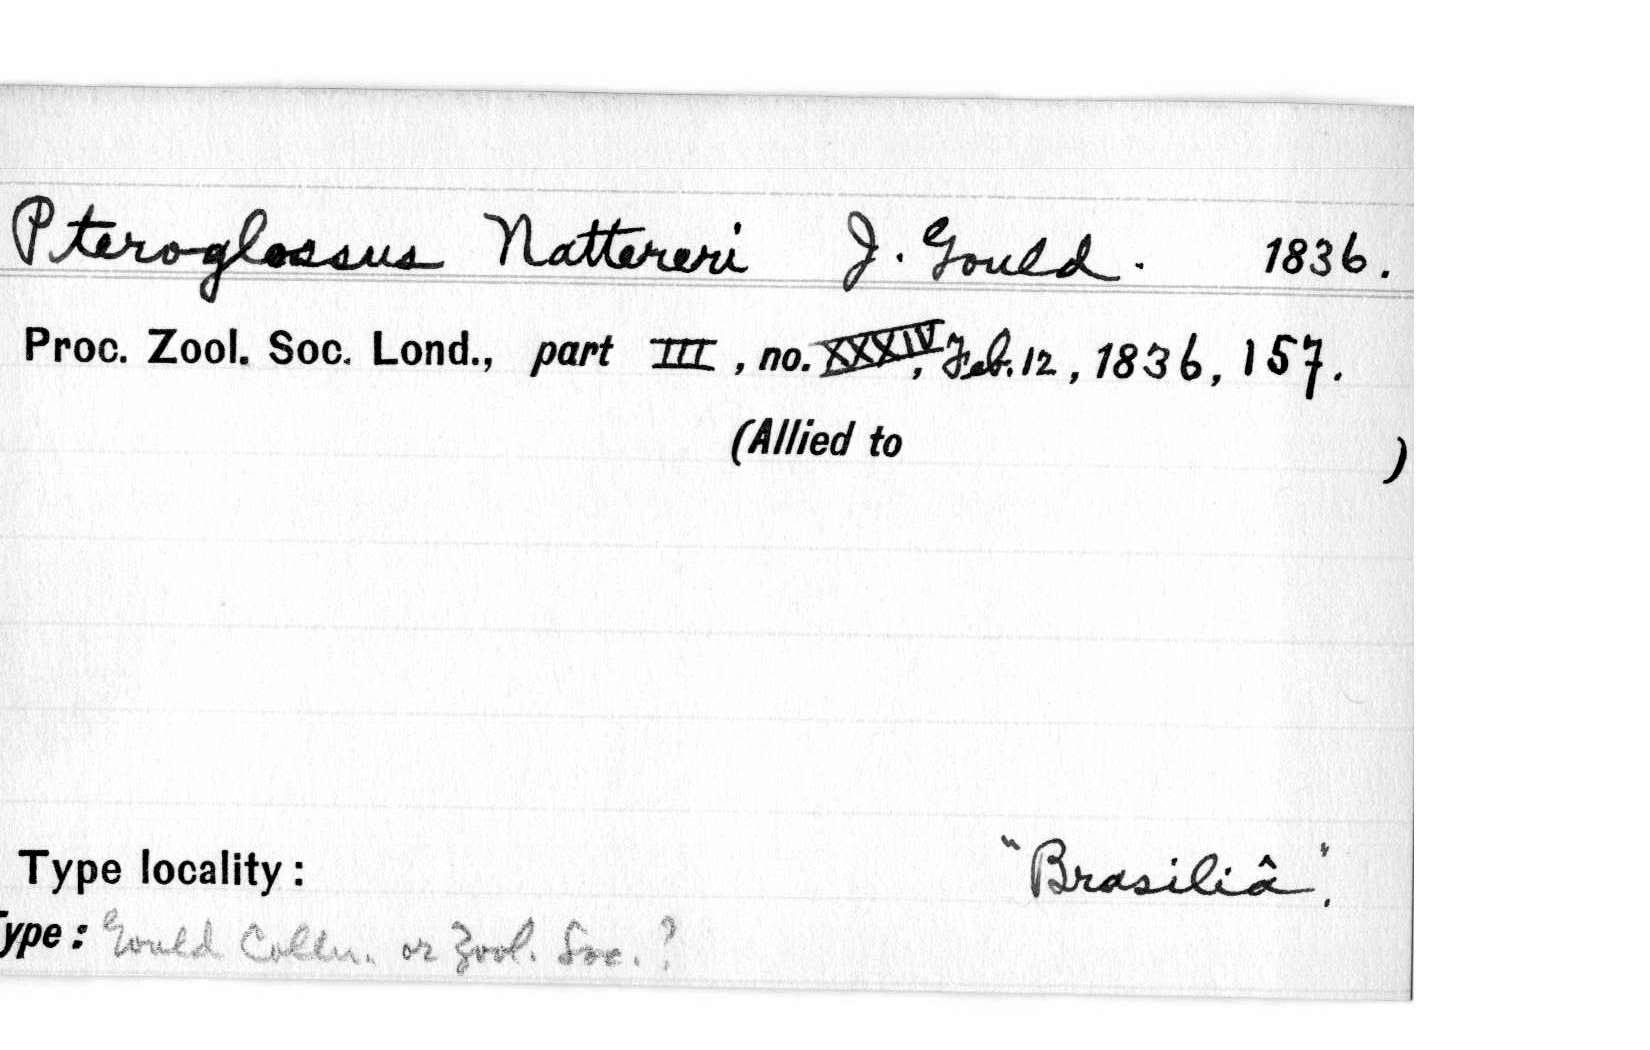 Pteroglossus Nattereri J. Gould. 1836.
Proc. Zool. Soc. Lond., part III, no. XXXIV, Feb. 12, 1836, 157.
(Allied to )
Type locality: "Brasiliâ".
Type: Gould Colln. or Zool. Soc.?